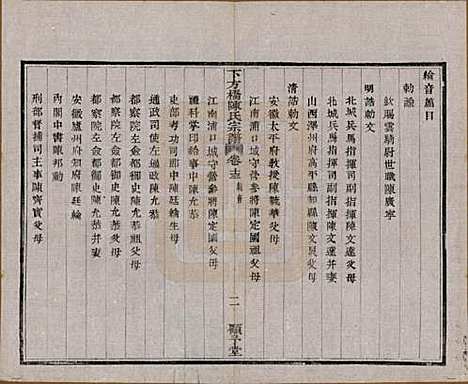 綸音篇目
勅諭
欽賜雲騎尉世職陳廣寧
明誥勅文
北城兵馬指揮司副指揮陳文遶父母
北城兵馬指揮司副指揮陳文遶并妻
山西澤州府高平縣知縣陳文晟父母
清誥勅文
安徽太平府教授陳毓華父母
江南浦口城守營參將陳定國祖父母
江南浦口城守營參將陳定國父母
下方橋陳氏宗譜 卷十五
二 顯孝堂
吏科掌印給事中陳允恭
吏部考功司郎中陳廷綸生母
通政司使左通政陳允恭
都察院左僉都御史陳允恭祖父母
都察院左僉都御史陳允恭父母
都察院左僉都御史陳允恭并妻
安徽廬州府知府陳廷綸
內閣中書陳邦勳
刑部督捕司主事陳齊實父母